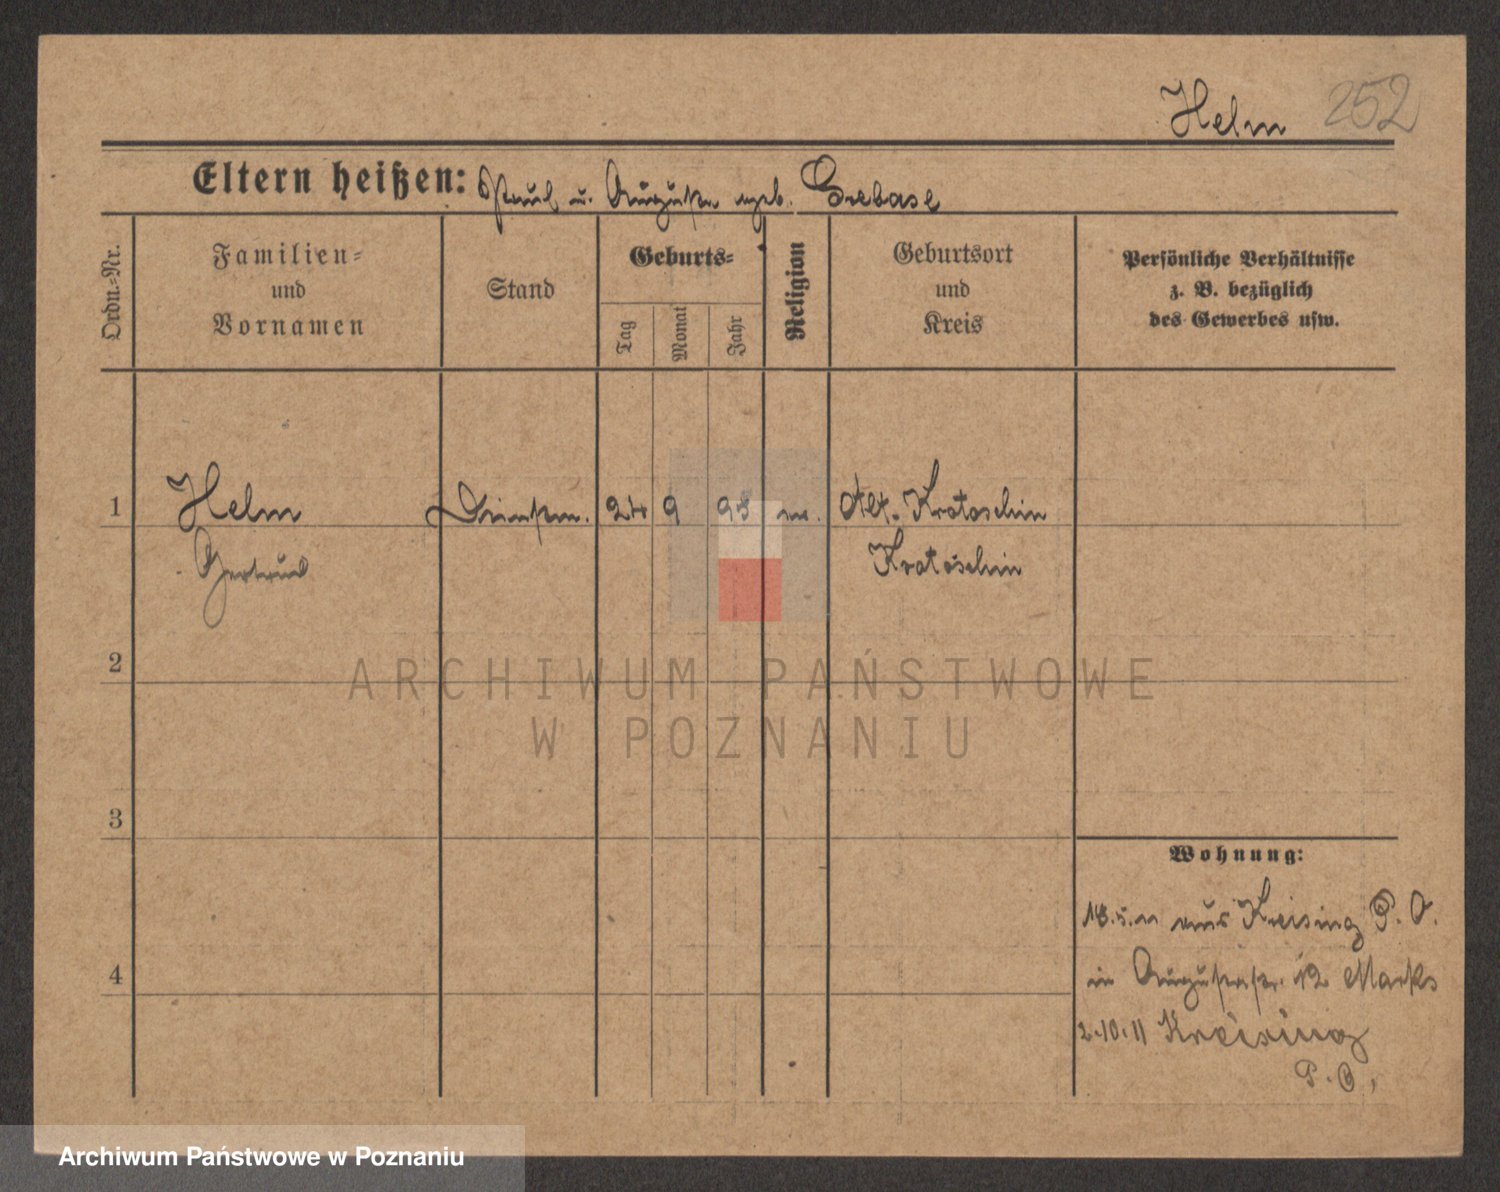 Helm 252
Eltern heißen: Paul u. Auguste geb. Siebase
Ordn.-Nr.
Familien-
und
Vornamen
Stand
Geburts-
Tag
Monat
Jahr
Religion
Geburtsort
und
Kreis
Persönliche Verhältnisse
z. B. bezüglich
des Gewerbes usw.
1 Helm 24 9 93 Alt. Krotoschin
Gertrud Krotoschin
2
ARCHIWUM PAŃSTWOWE
W POZNANIU
3
Wohnung:
18.5.11 aus Kreising P. O.
4
in Augustastr. 12 Marks
2.10.11 Kreising
P. O,
Archiwum Państwowe w Poznaniu